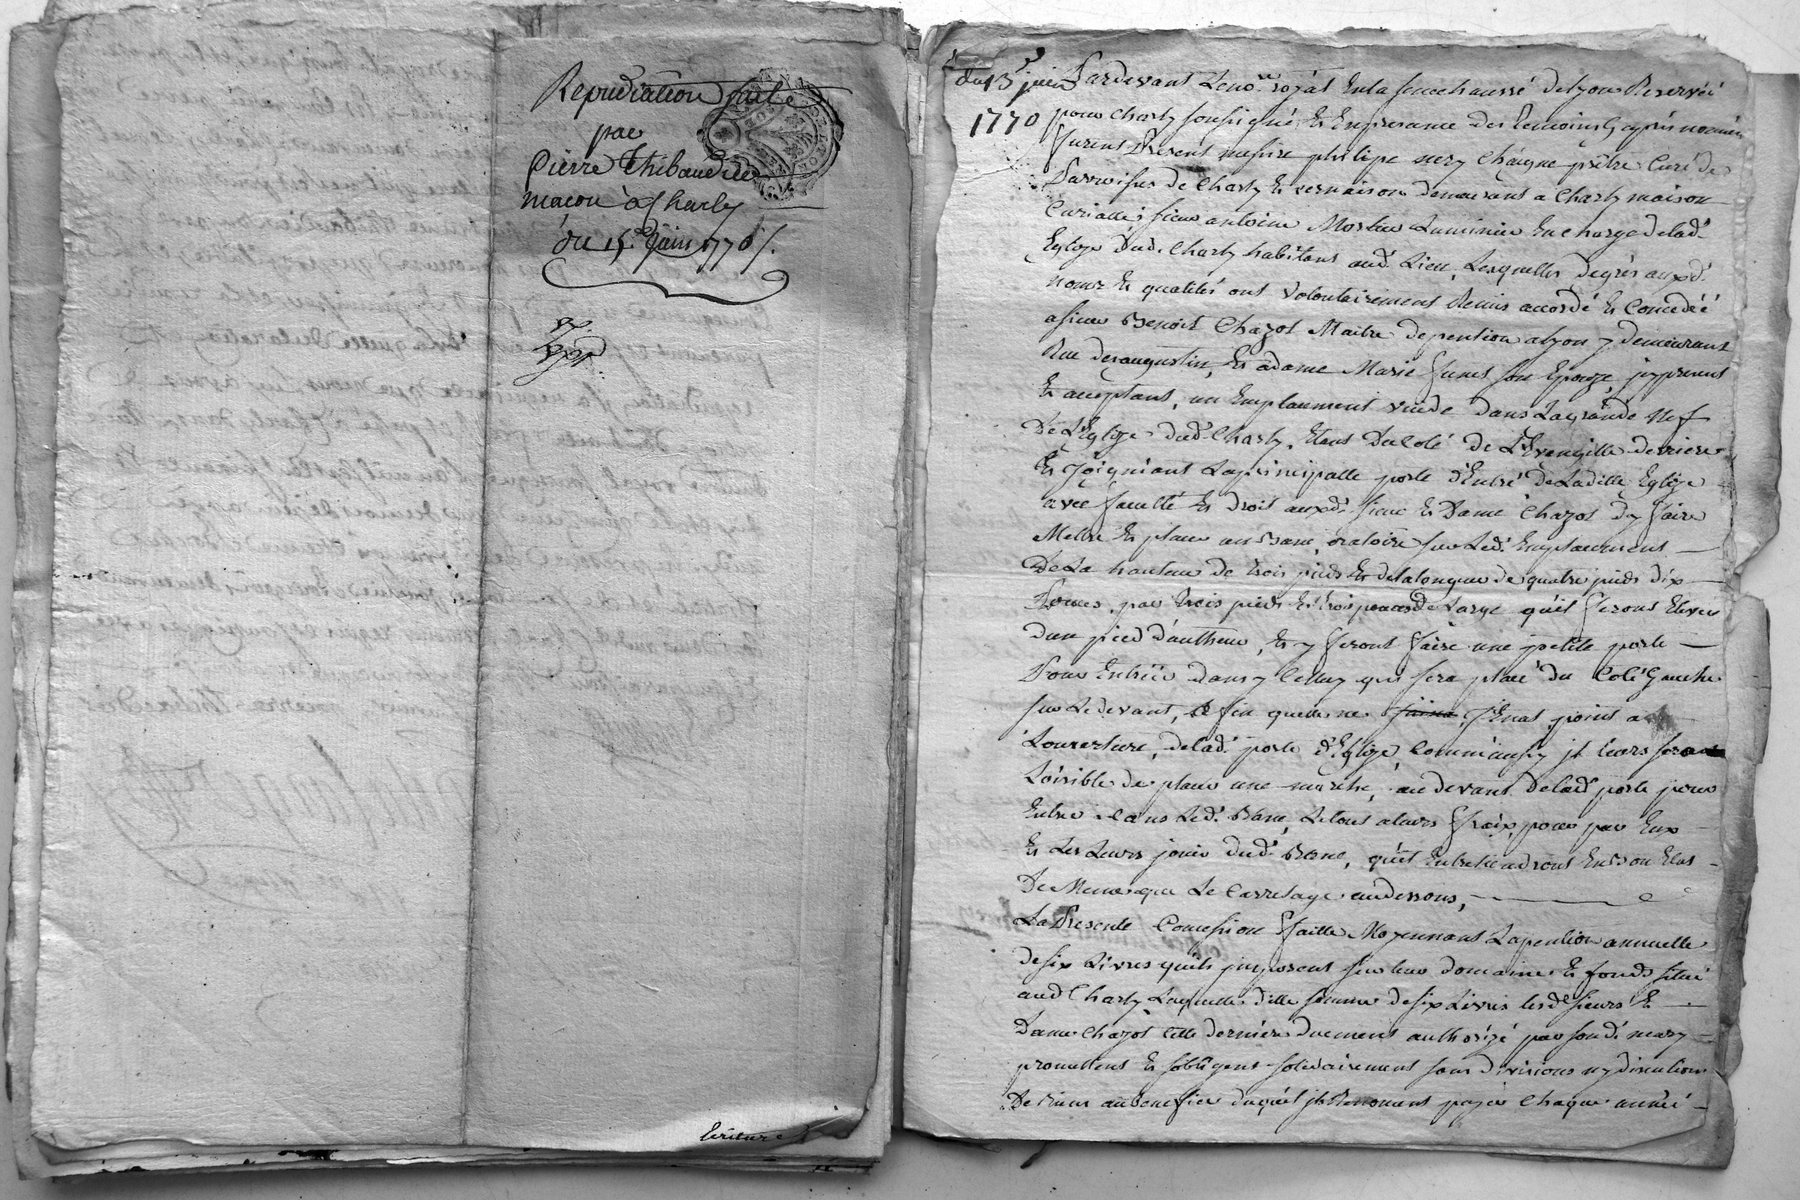 Repudiation faite
par
Pierre Thibaudier
macon à Charly
du 15e Juin 1770
Ecritures
du 13e juin
1770
Pardevant Le nore royal En la senechaussé de Lyon Reservé
pour Charly soussigné Et En presence des temoins cy après nommés
furent Present messire philipe nery Chavgne prêtre Curé de
Parroisses de Charly Et vernaison demeurant a Charly maison
Curialle; sieur antoine Luminier En charge de lad.
Eglize dud. Charly habitant aud. Lieu, Lesquelles de grés auxd.
noms Et qualités ont volontairement Remis accordé Et Concedéé
a sieur Benoit Chazot Maitre de pention a Lyon y demeurant
Rue des augustin, Et a dame Marie son Epouze, jcy present
Et acceptant, un Emplacement vuide dans La grande Nef
De L'Eglize dud. Charly, Etant du Coté de L'Evengille derriere
Et Joigniant La principalle porte d'Entré de Ladite Eglize
avec faculté Et droit auxd. sieur Et Dame Chazot dy faire
Mettre Et placer un Banc, oratoire sur Led. Emplacement
De La hauteur de trois pieds Et de la longueur de quatre pieds dix
Pouces, par trois pieds Et trois pouces de Large qu'il feront Elever
dun pied d'autheur, Et y feront faire une petite porte
Pour Entrer dans yCelluy qui sera placé du Coté Gauche
sur Le devant, a fin quelle ne point a
Louverture, de lad. porte d'Eglize, Comm'aussy jl leurs sera
Loisible de placer une marche, au devant de lad. porte pour
Entrer dans Led. Banc, Le tout a leurs fraix, pour par Eux
Et Les Leurs jouir dud. Banc, qu'il Entretiendront En bon Etat
De Meme que Le Carrelage au dessous,
La Presente Concession faitte Moyennant La pention annuelle
de six Livres quils jmposent sur leur domaine Et fonds situé
aud. Charly Laquelle ditte somme de six Livres lesd. sieurs Et
Dame Chazot Cette derniere duement authorizé par sond. mary
promettent Et s'obligent solidairement sans divisions ny discution
De Biens au benefice duquel jls Renoncent payer Chaque année